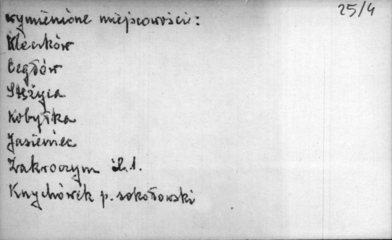 25/4
wymienione miejscowości:
Kleczków
Cegłów
Stężyca
Kobyłka
Jasieniec
Zakroczym i 2.1.
Knychówek p. sokołowski